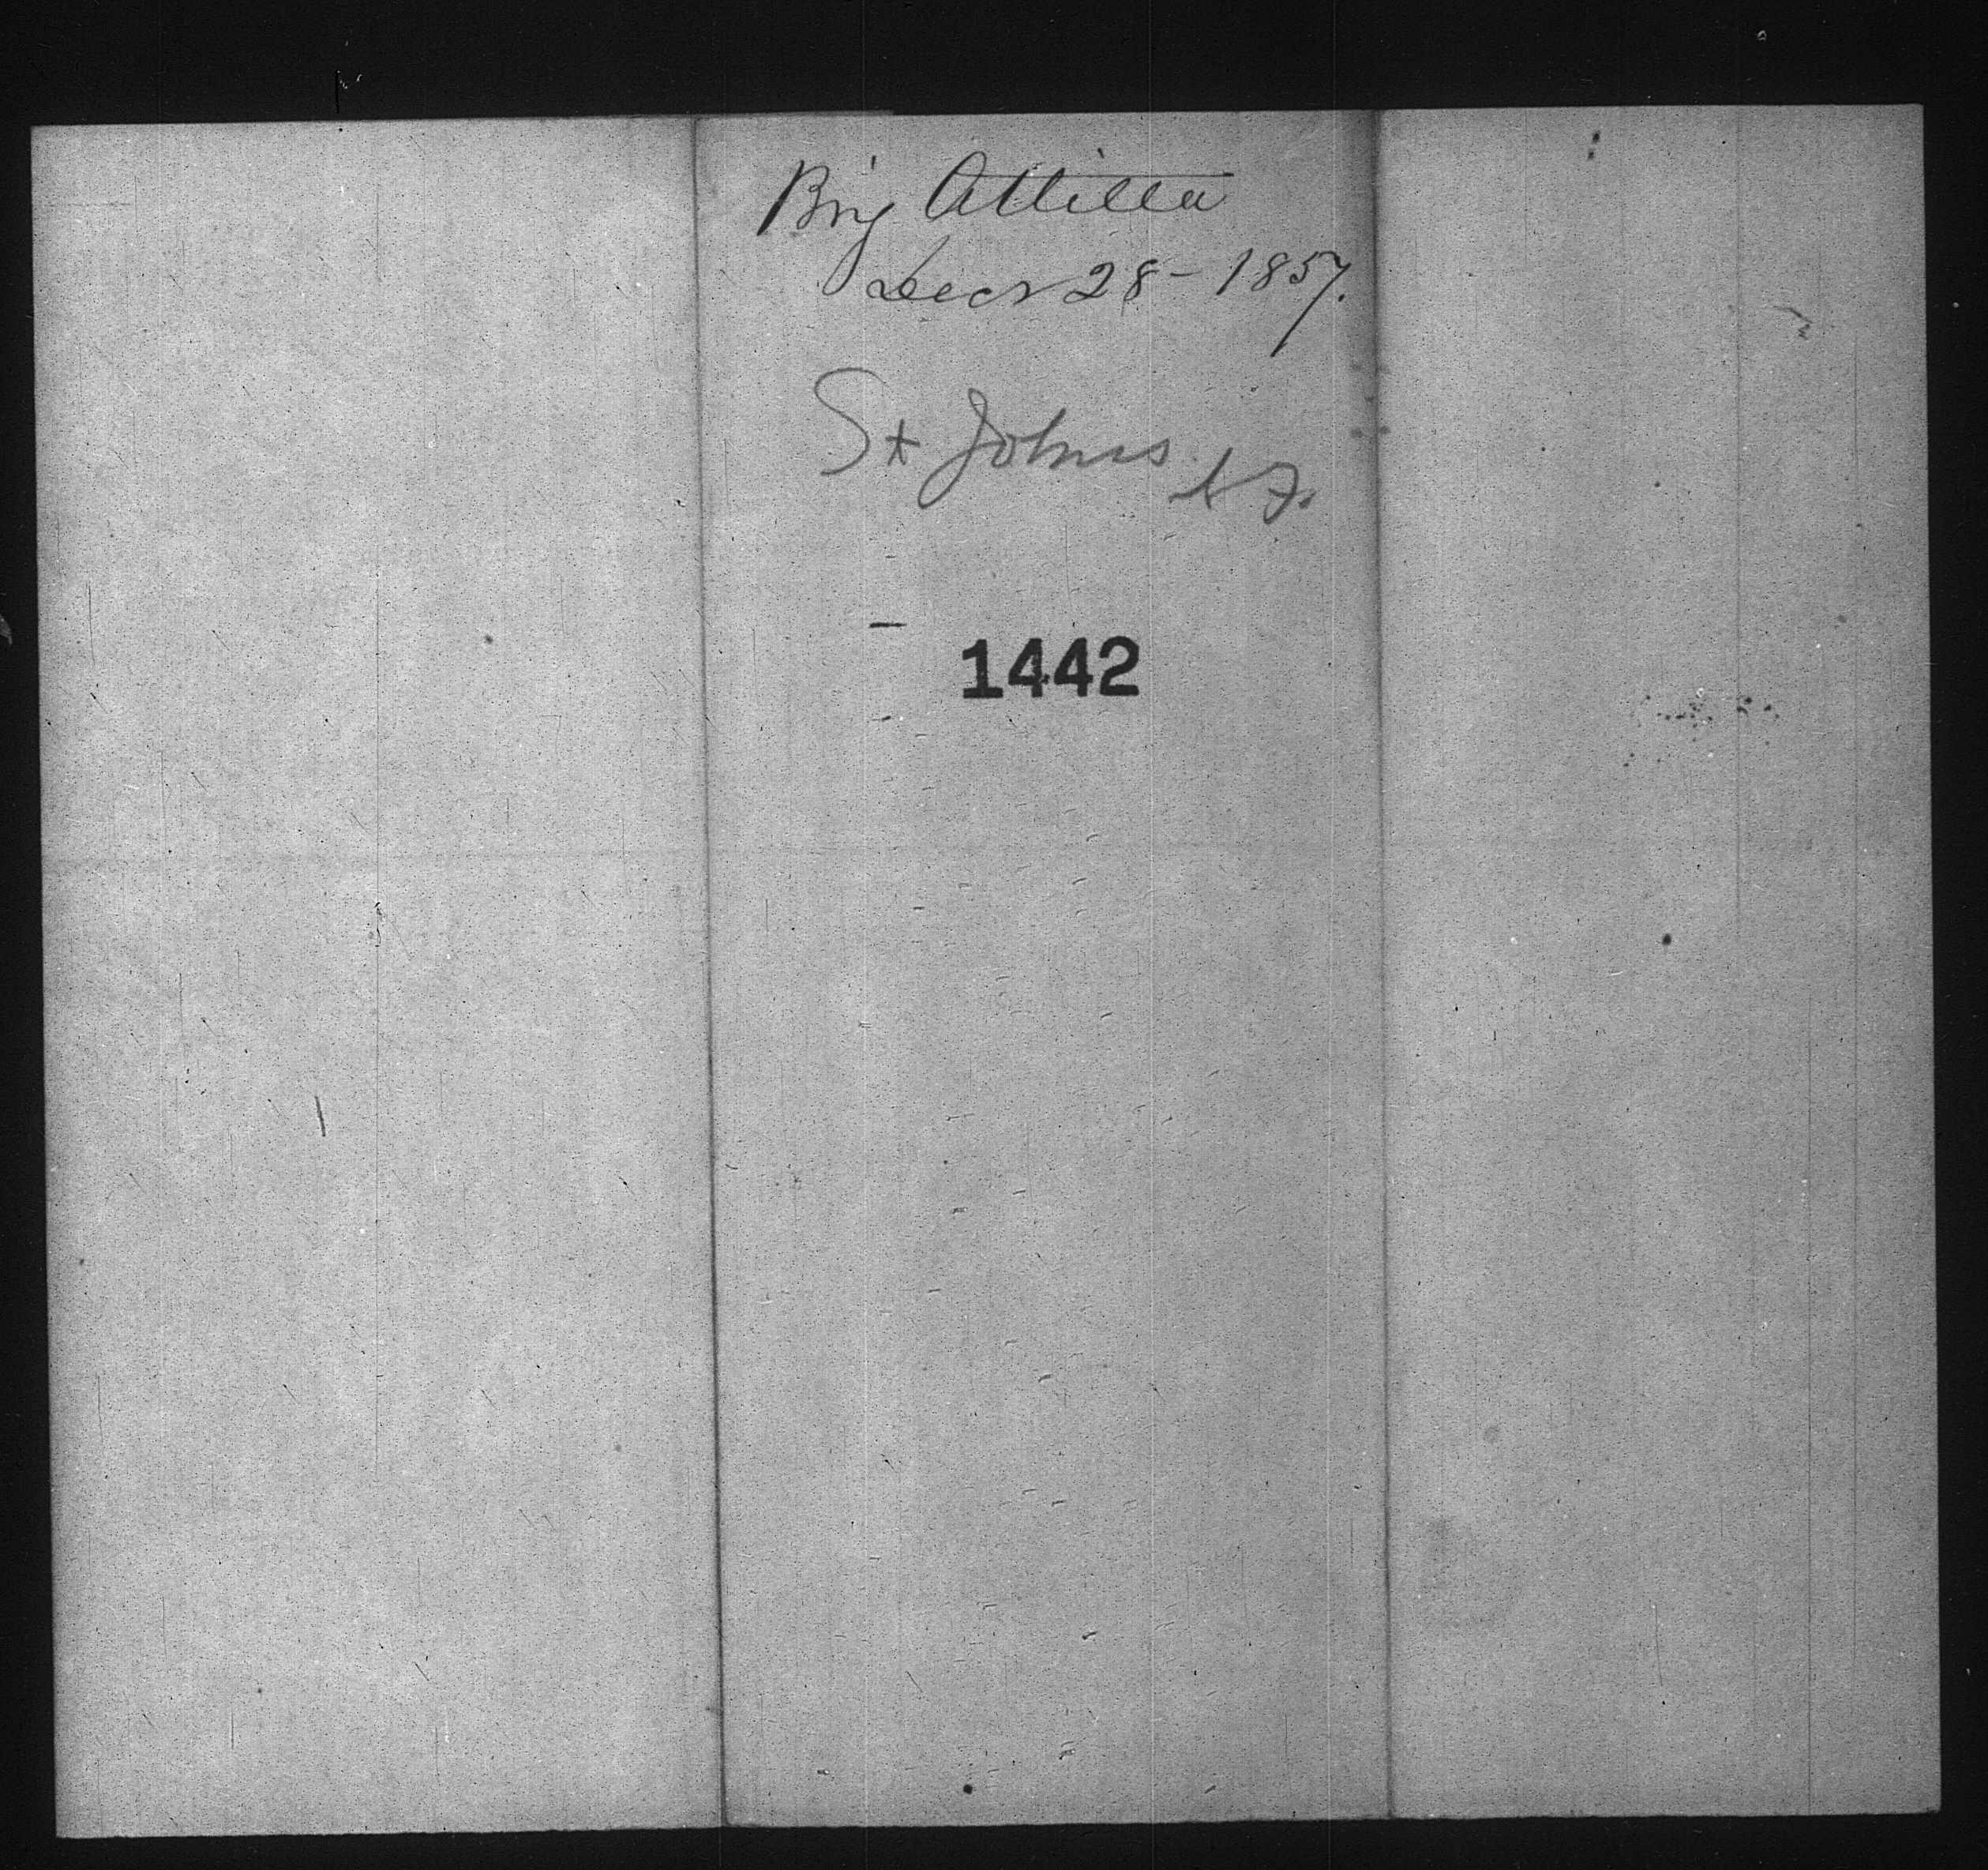 Brig Attilla
Decr 28 - 1857.
St Johns N F.
1442